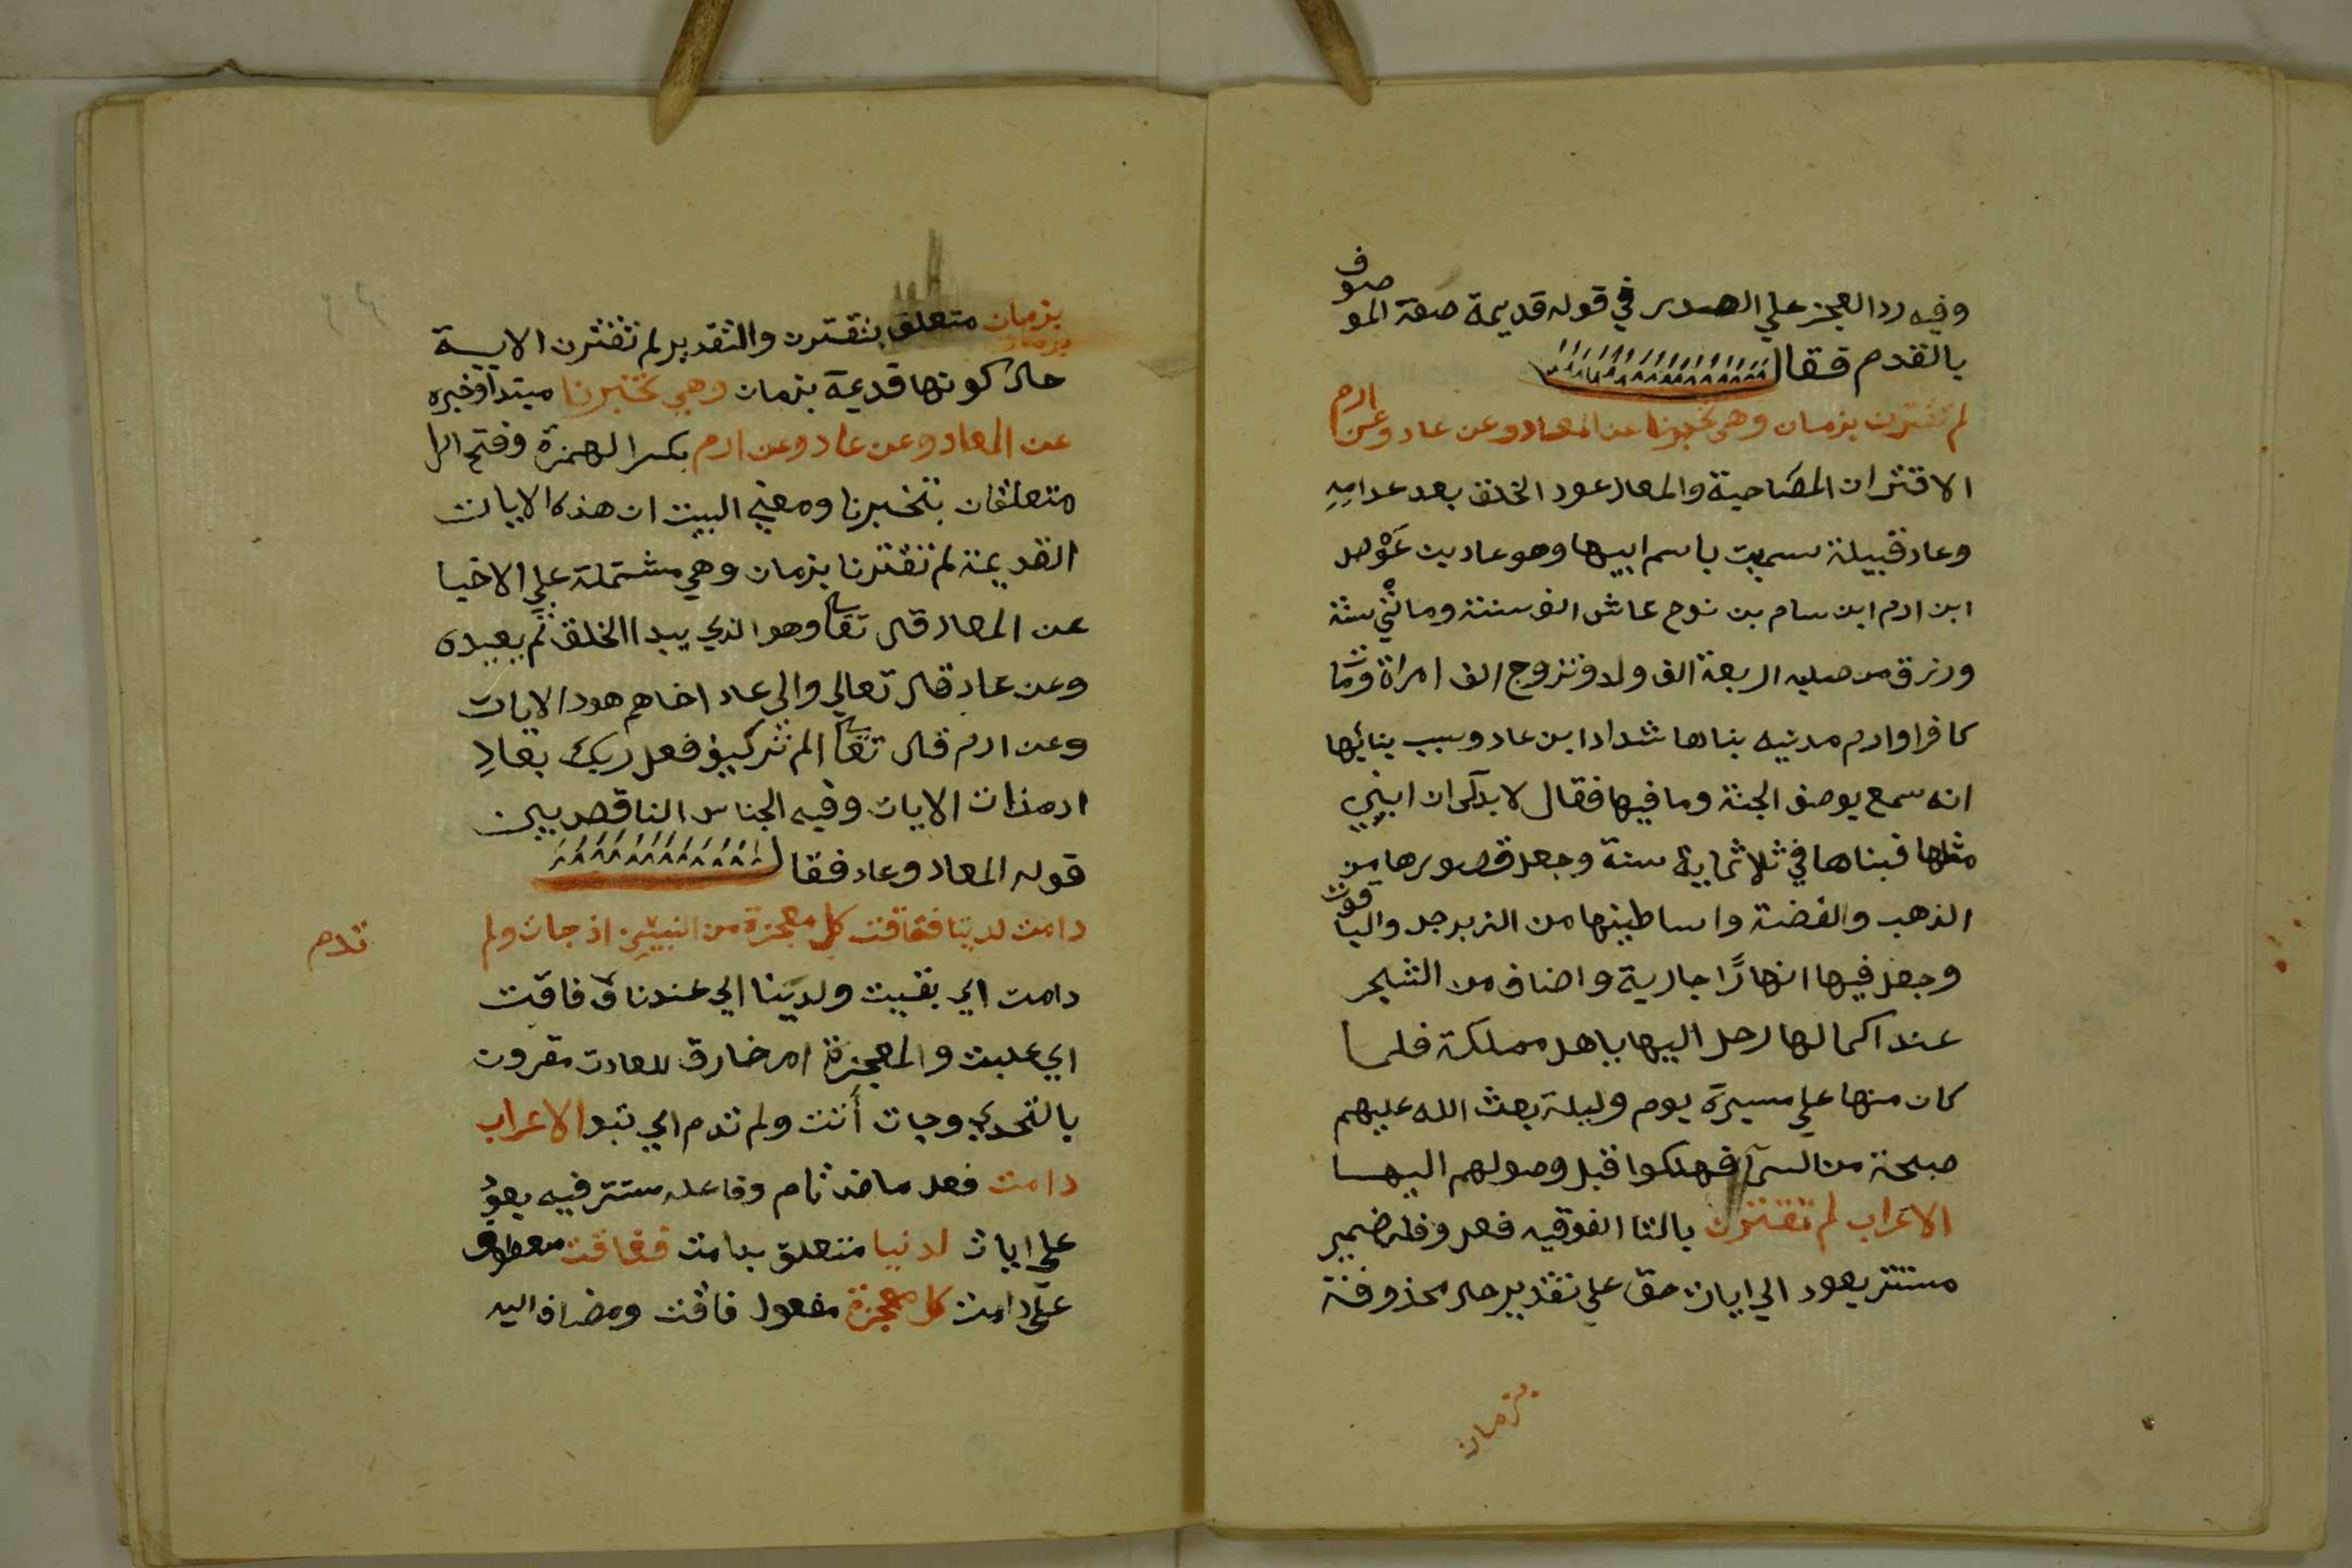 وفيه رد العجز علي الصدر في قوله قديمة صفة الموصوف
بالقدم فقال
لم تقترن بزمان وهي تخبرنا عن المعاد وعن عاد وعن ارم
الاقتران المصاحبة والمعاد عود الخلق بعد عدامِهِ
وعاد قبيلة سميت باسم ابيها وهو عاد بن عَوْص
ابن ارم ابن سام بن نوح عاش الف سنة ومائتي سنة
ورزق من صلبه اربعة الف ولد وتزوج الف امراة ومات
كافرا وارم مدنيه بناها شداد ابن عاد وسبب بنائها
انه سمع يوصف الجنة وما فيها فقال لا بد لي ان ابني
مثلها فبناها في ثلاثماية سنة وجعل قصورها من
الذهب والفضة واساطينها من الزبرجد والياقوت
وجعل فيها انهارًا جارية واصناف من الشجر
عند اكمالها رحل اليها باهل مملكة فلما
كان منها علي مسيرة يوم وليلة بعث الله عليهم
صيحة من السمآ فهلكوا قبل وصولهم اليها
الاعراب لم تقترن بالتا الفوقيه فعل وفله ضمير
مستتر يعود الي ايات حق علي تقدير حال محذوفة
بزمان
بزمان متعلق بتقترن والتقدير لم تقترن الاية
حال كونها قديمة بزمان وهي تخبرنا مبتدا وخبره
عن المعاد وعن عاد وعن ارم بكسر الهمزة وفتح الرا
متعلقان بتخبرنا ومعني البيت ان هذه الايات
القديمة لم تقترنا بزمان وهي مشتملة علي الاخبا
عن المعاد قال تعالى وهو الذي يبدا الخلق ثم يعيده
وعن عاد قال تعالي والي عاد اخاهم هودا الايات
وعن ارم قال تعالى الم تر كيف فعل ربك بعادِ
ارم ذات الايات وفيه الجناس الناقص بين
قوله المعاد وعاد فقال
دامت لدينا ففاقت كل معجزة من النبيين اذ جات ولم
تدم
دامت اي بقيت ولدينا اي عندنا وفاقت
اي غلبت والمعجزة امر خارق للعادت مقرون
بالتحدي وجات أتت ولم تدم اي تبو الاعراب
دامت فعل ماض تام وفاعله مستتر فيه يعود
علي ايات لدنيا متعلق بدامت ففاقت معطوف
علي دامت كل معجزة مفعول فاقت ومضاف اليه